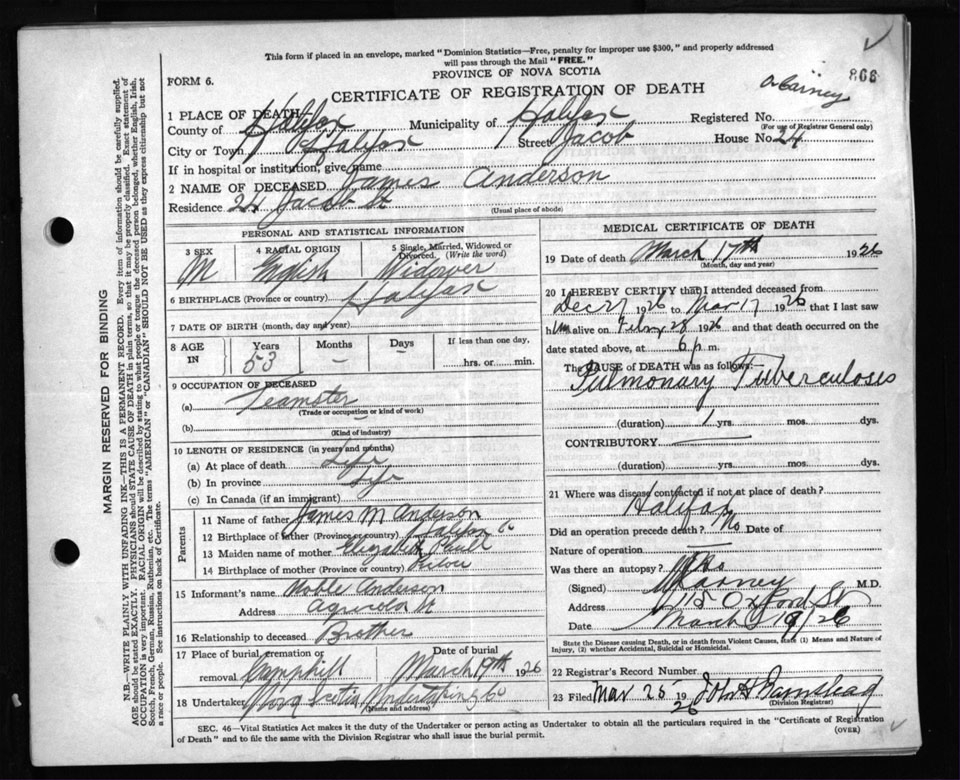 This form if placed in an envelope, marked "Dominion Statistics—Free, penalty for improper use $300," and properly addressed
will pass through the Mail "FREE."
FORM 6.
PROVINCE OF NOVA SCOTIA
866
CERTIFICATE OF REGISTRATION OF DEATH
1 PLACE OF DEATH—
County of Halifax Municipality of Halifax Registered No.
(For use of Registrar General only)
City or Town Halifax Street Jacob House No. 24
If in hospital or institution, give name
2 NAME OF DECEASED James Anderson
Residence 24 Jacob St
(Usual place of abode)
PERSONAL AND STATISTICAL INFORMATION
3 SEX M
4 RACIAL ORIGIN English
5 Single, Married, Widowed or Divorced. (Write the word) Widower
6 BIRTHPLACE (Province or country) Halifax
7 DATE OF BIRTH (month, day and year)
8 AGE IN Years 53 Months — Days — If less than one day, hrs. or min.
9 OCCUPATION OF DECEASED
(a) Teamster
(Trade or occupation or kind of work)
(b)
(Kind of industry)
10 LENGTH OF RESIDENCE (in years and months)
(a) At place of death Life
(b) In province Life
(c) In Canada (if an immigrant)
Parents
11 Name of father James M Anderson
12 Birthplace of father (Province or country) Halifax
13 Maiden name of mother Elizabeth
14 Birthplace of mother (Province or country)
15 Informant's name Noble Anderson
Address Agricola St
16 Relationship to deceased Brother
17 Place of burial, cremation or removal Camphill
Date of burial March 19th 1926
18 Undertaker Nova Scotia Undertaking Co
(Name and address)
MEDICAL CERTIFICATE OF DEATH
19 Date of death March 17th 1926
(Month, day and year)
20 I HEREBY CERTIFY that I attended deceased from
Dec 27 1926 to Mar 17 1926 that I last saw
him alive on 28 1926 and that death occurred on
date stated above, at 6 p m.
The CAUSE OF DEATH was as follows:
Pulmonary Tuberculosis
(duration) 1 yrs. mos. dys.
CONTRIBUTORY —
(duration) yrs. mos. dys.
21 Where was disease contracted if not at place of death?
Halifax
Did an operation precede death? No Date of
Nature of operation —
Was there an autopsy? No
(Signed) M.D.
Address 115 Oxford St
Date March 19/26
State the Disease causing Death, or in death from Violent Causes, state (1) Means and Nature of
Injury, (2) whether Accidental, Suicidal or Homicidal.
22 Registrar's Record Number
23 Filed Mar 25 1926 John H
(Division Registrar)
SEC. 46—Vital Statistics Act makes it the duty of the Undertaker or person acting as Undertaker to obtain all the particulars required in the "Certificate of Registration
of Death" and to file the same with the Division Registrar who shall issue the burial permit.
(OVER)
MARGIN RESERVED FOR BINDING
N.B.—WRITE PLAINLY WITH UNFADING INK—THIS IS A PERMANENT RECORD. Every item of information should be carefully supplied.
AGE should be stated EXACTLY. PHYSICIANS should STATE CAUSE OF DEATH in plain terms, so that it may be properly classified. Exact statement of
OCCUPATION is very important. RACIAL ORIGIN will be described by stating to what people or tongue the deceased person belonged, whether English, Irish,
Scotch, French, German, Russian, Ruthenian, etc. The terms "AMERICAN" or "CANADIAN" SHOULD NOT BE USED as they express citizenship but not
a race or people. See instructions on back of Certificate.